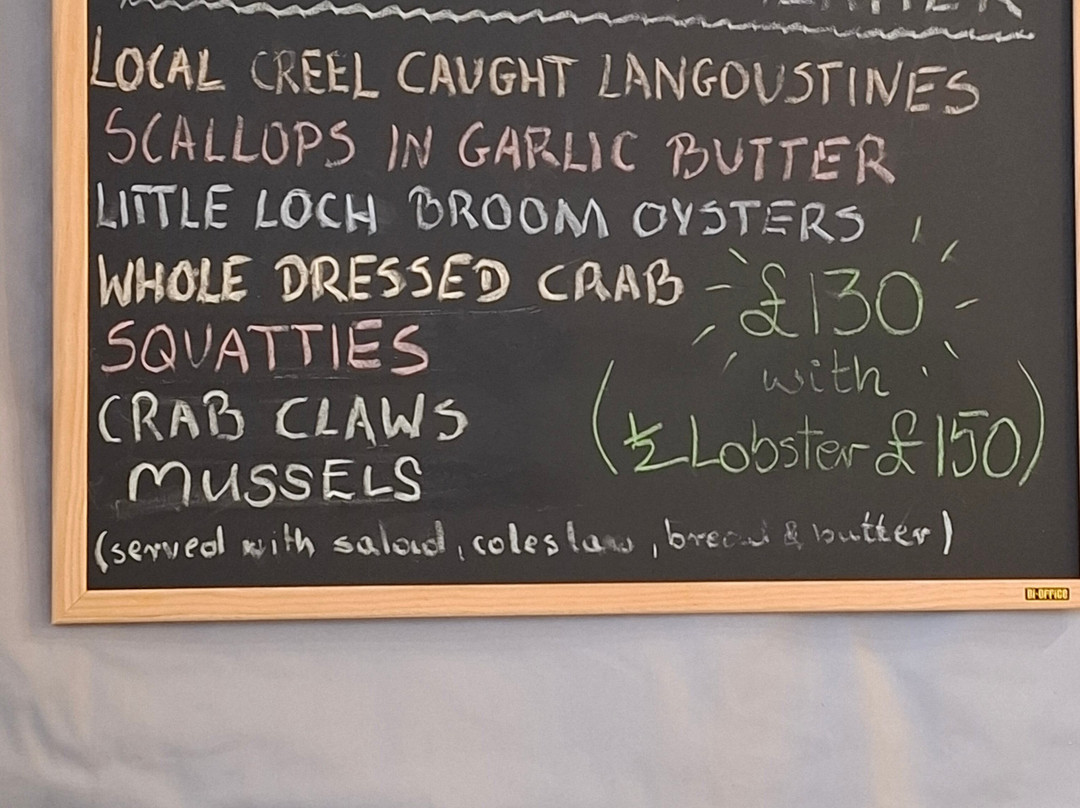 LOCAL CREEL CAUGHT LANGOUSTINES
SCALLOPS IN GARLIC BUTTER
LITTLE LOCH BROOM OYSTERS
WHOLE DRESSED CRAB
£130
SQUATTIES
with
CRAB CLAWS
(½ Lobster £150)
MUSSELS
(served with salad, coleslaw, bread & butter)
BI-OFFICE